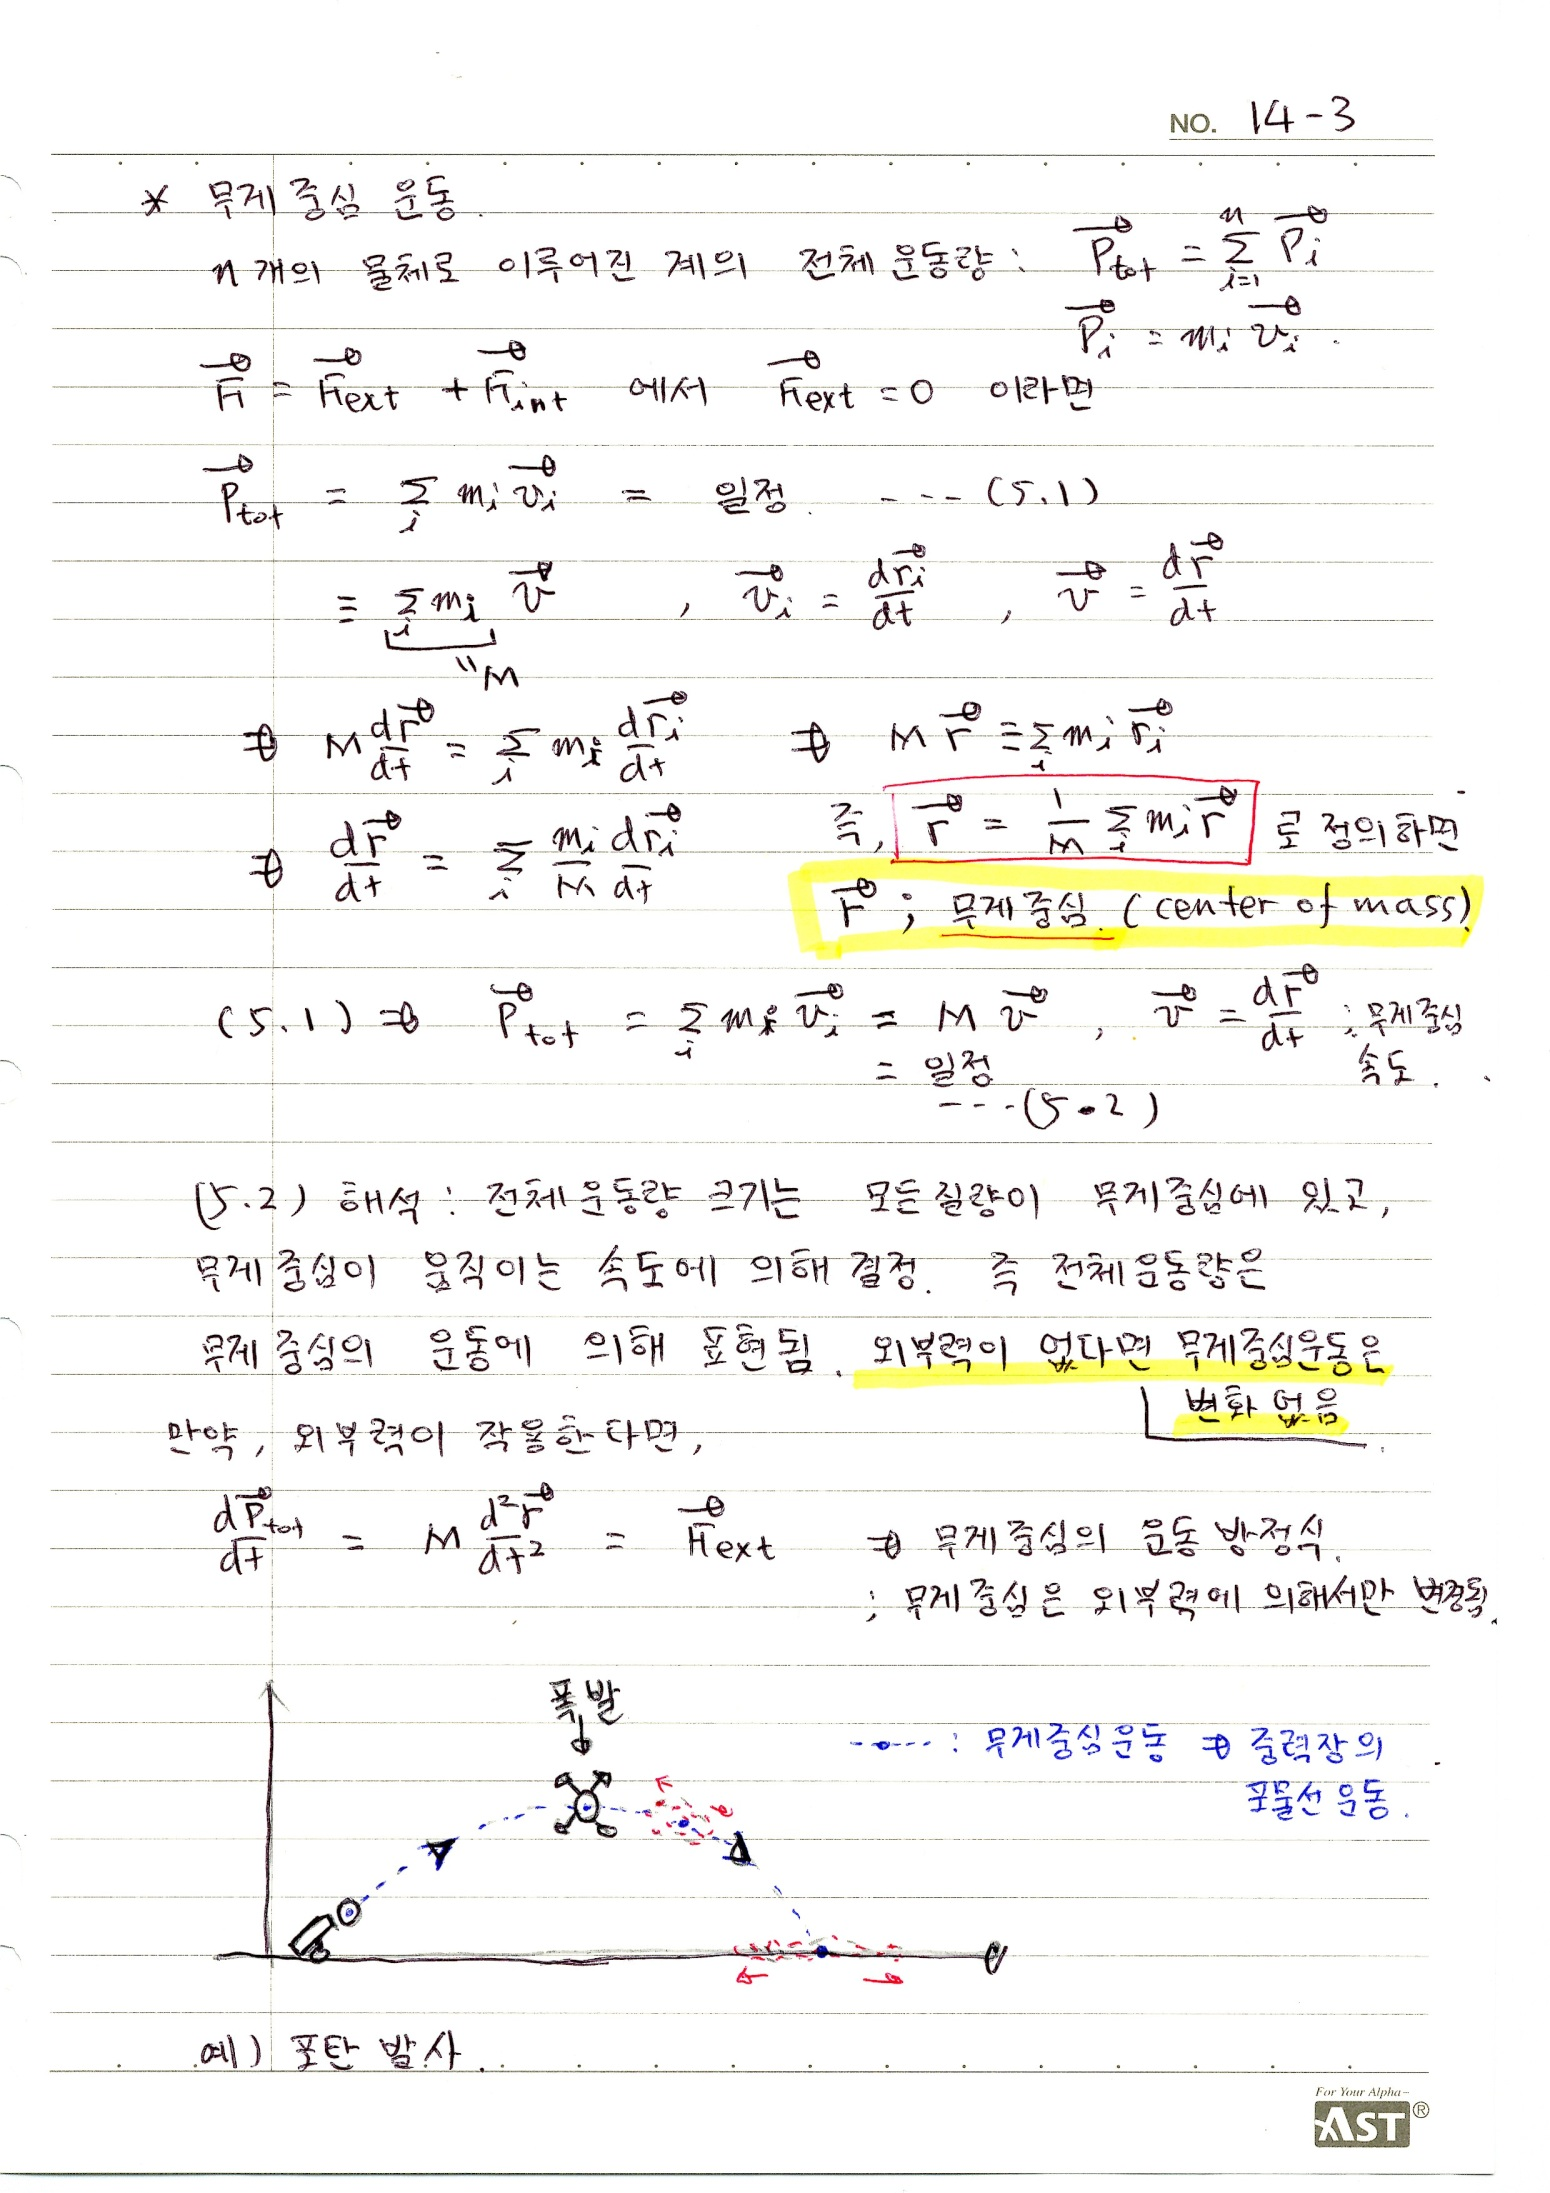 NO. 14-3
* 무게중심 운동.
n개의 물체로 이루어진 계의 전체운동량 : $\vec{P}_{tot} = \sum_{i=1}^{n} \vec{P}_i$
$\vec{P}_i = m_i \vec{v}_i$.
$\vec{F} = \vec{F}_{ext} + \vec{F}_{int}$ 에서 $\vec{F}_{ext} = 0$ 이라면
$\vec{P}_{tot} = \sum_i m_i \vec{v}_i =$ 일정. --- (5.1)
$\equiv \sum_i m_i \vec{v}$ , $\vec{v}_i = \frac{d\vec{r}_i}{dt}$ , $\vec{v} = \frac{d\vec{r}}{dt}$
" M
⇒ $M \frac{d\vec{r}}{dt} = \sum_i m_i \frac{d\vec{r}_i}{dt}$ ⇒ $M \vec{r} \equiv \sum_i m_i \vec{r}_i$
⇒ $\frac{d\vec{r}}{dt} = \sum_i \frac{m_i}{M} \frac{d\vec{r}_i}{dt}$ 즉, $\vec{r} = \frac{1}{M} \sum_i m_i \vec{r}$ 로 정의하면
$\vec{r}$ ; 무게중심. (center of mass).
(5.1) ⇒ $\vec{P}_{tot} = \sum_i m_i \vec{v}_i = M \vec{v}$ , $\vec{v} = \frac{d\vec{r}}{dt}$ ; 무게중심
= 일정 속도.
--- (5.2)
(5.2) 해석 : 전체운동량 크기는 모든질량이 무게중심에 있고,
무게중심이 움직이는 속도에 의해 결정. 즉 전체운동량은
무게중심의 운동에 의해 표현됨. 외부력이 없다면 무게중심운동은
변화 없음.
만약, 외부력이 작용한다면,
$\frac{d\vec{P}_{tot}}{dt} = M \frac{d^2\vec{r}}{dt^2} = \vec{F}_{ext}$ ⇒ 무게중심의 운동방정식.
; 무게중심은 외부력에 의해서만 변경됨.
폭발
--•--- : 무게중심운동 ⇒ 중력장의
포물선운동.
예) 포탄 발사.
For Your Alpha-
AST®